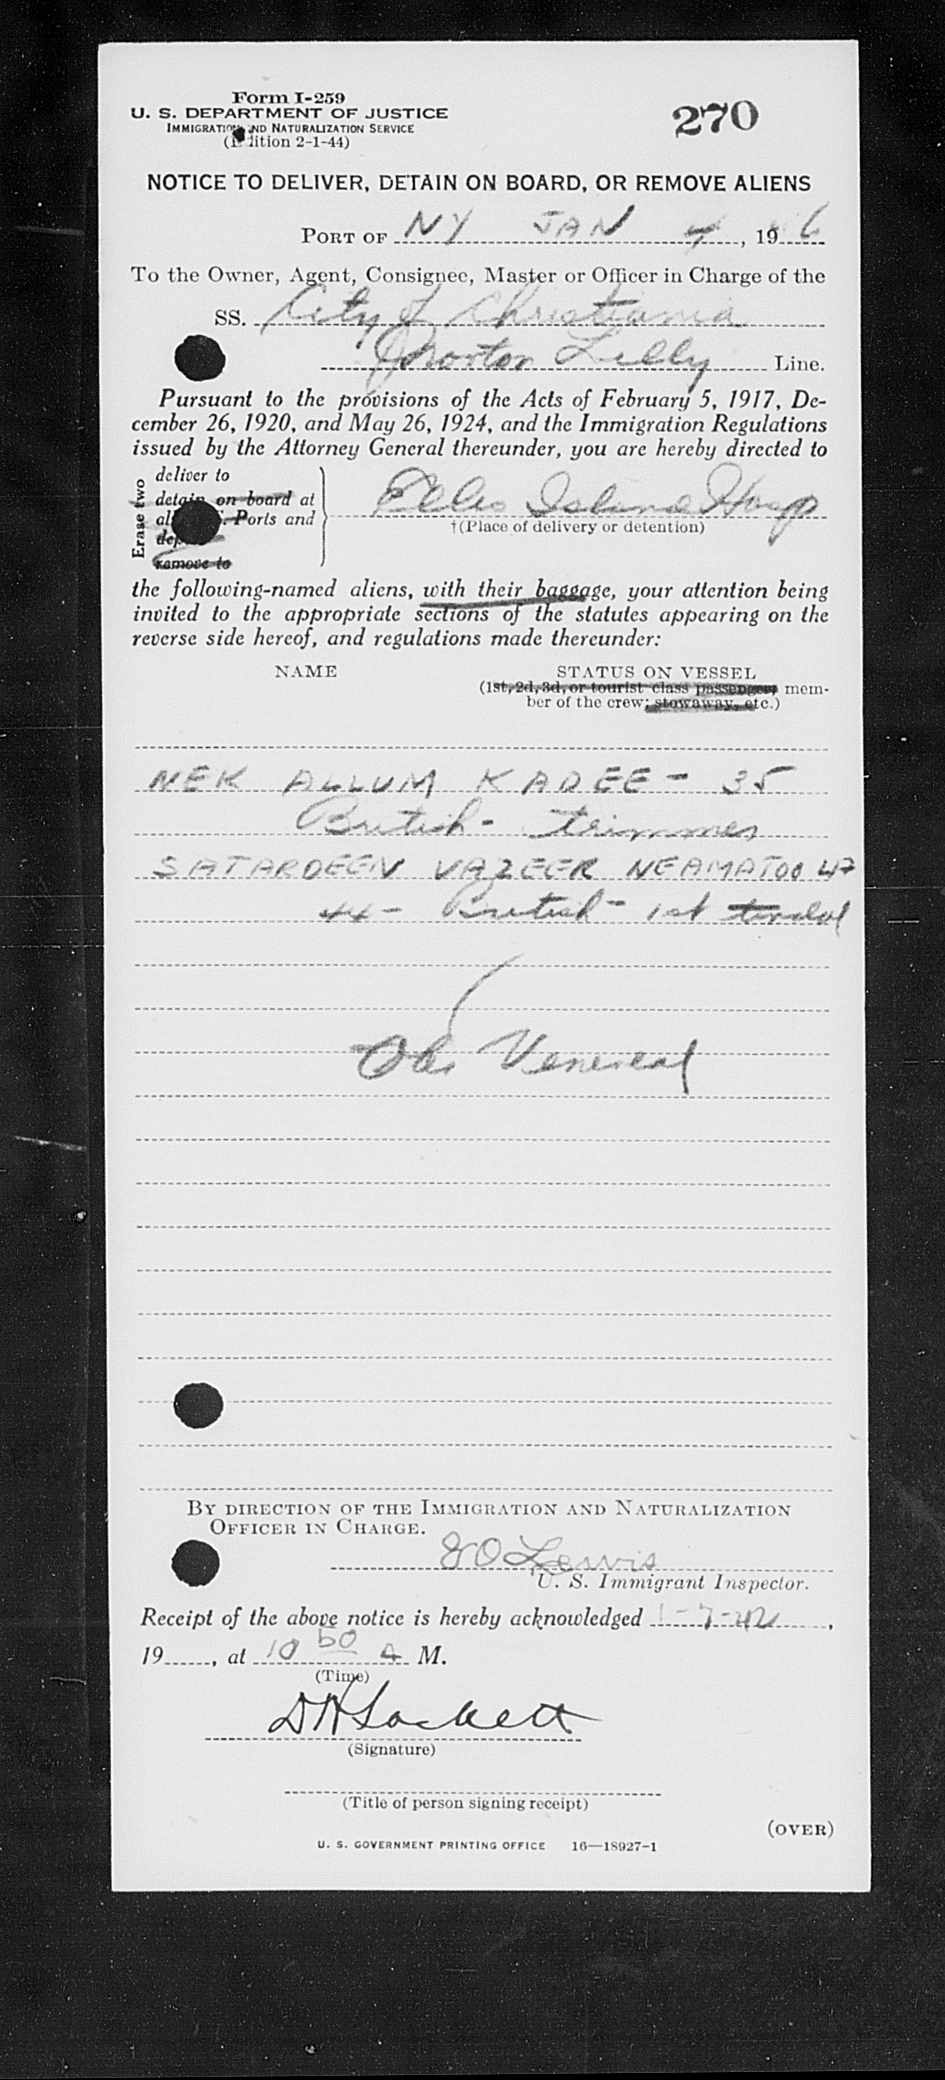 Form I-259
U. S. DEPARTMENT OF JUSTICE
IMMIGRATION AND NATURALIZATION SERVICE
(Edition 2-1-44)
270
NOTICE TO DELIVER, DETAIN ON BOARD, OR REMOVE ALIENS
PORT OF NY JAN 7, 19 6
To the Owner, Agent, Consignee, Master or Officer in Charge of the
SS. City of Christiania
Norton Lilly Line.
Pursuant to the provisions of the Acts of February 5, 1917, De-
cember 26, 1920, and May 26, 1924, and the Immigration Regulations
issued by the Attorney General thereunder, you are hereby directed to
Erase two
deliver to
detain on board at
all U. S. Ports and
remove to
Ellis Island Hosp
†(Place of delivery or detention)
the following-named aliens, with their baggage, your attention being
invited to the appropriate sections of the statutes appearing on the
reverse side hereof, and regulations made thereunder:
NAME STATUS ON VESSEL
(1st, 2d, 3d, or tourist class passenger, mem-
ber of the crew; stowaway, etc.)
NEK ALLUM KADEE - 35
British - trimmer
SATARDEEN VAZEER NEAMATOO 47
44 - British - 1st tindal
Obs Venereal
BY DIRECTION OF THE IMMIGRATION AND NATURALIZATION
OFFICER IN CHARGE.
Lewis
U. S. Immigrant Inspector.
Receipt of the above notice is hereby acknowledged 1-7-,
19, at 10 50 A M.
(Time)
D H Lockett
(Signature)
(Title of person signing receipt)
(OVER)
U. S. GOVERNMENT PRINTING OFFICE 16—18927-1